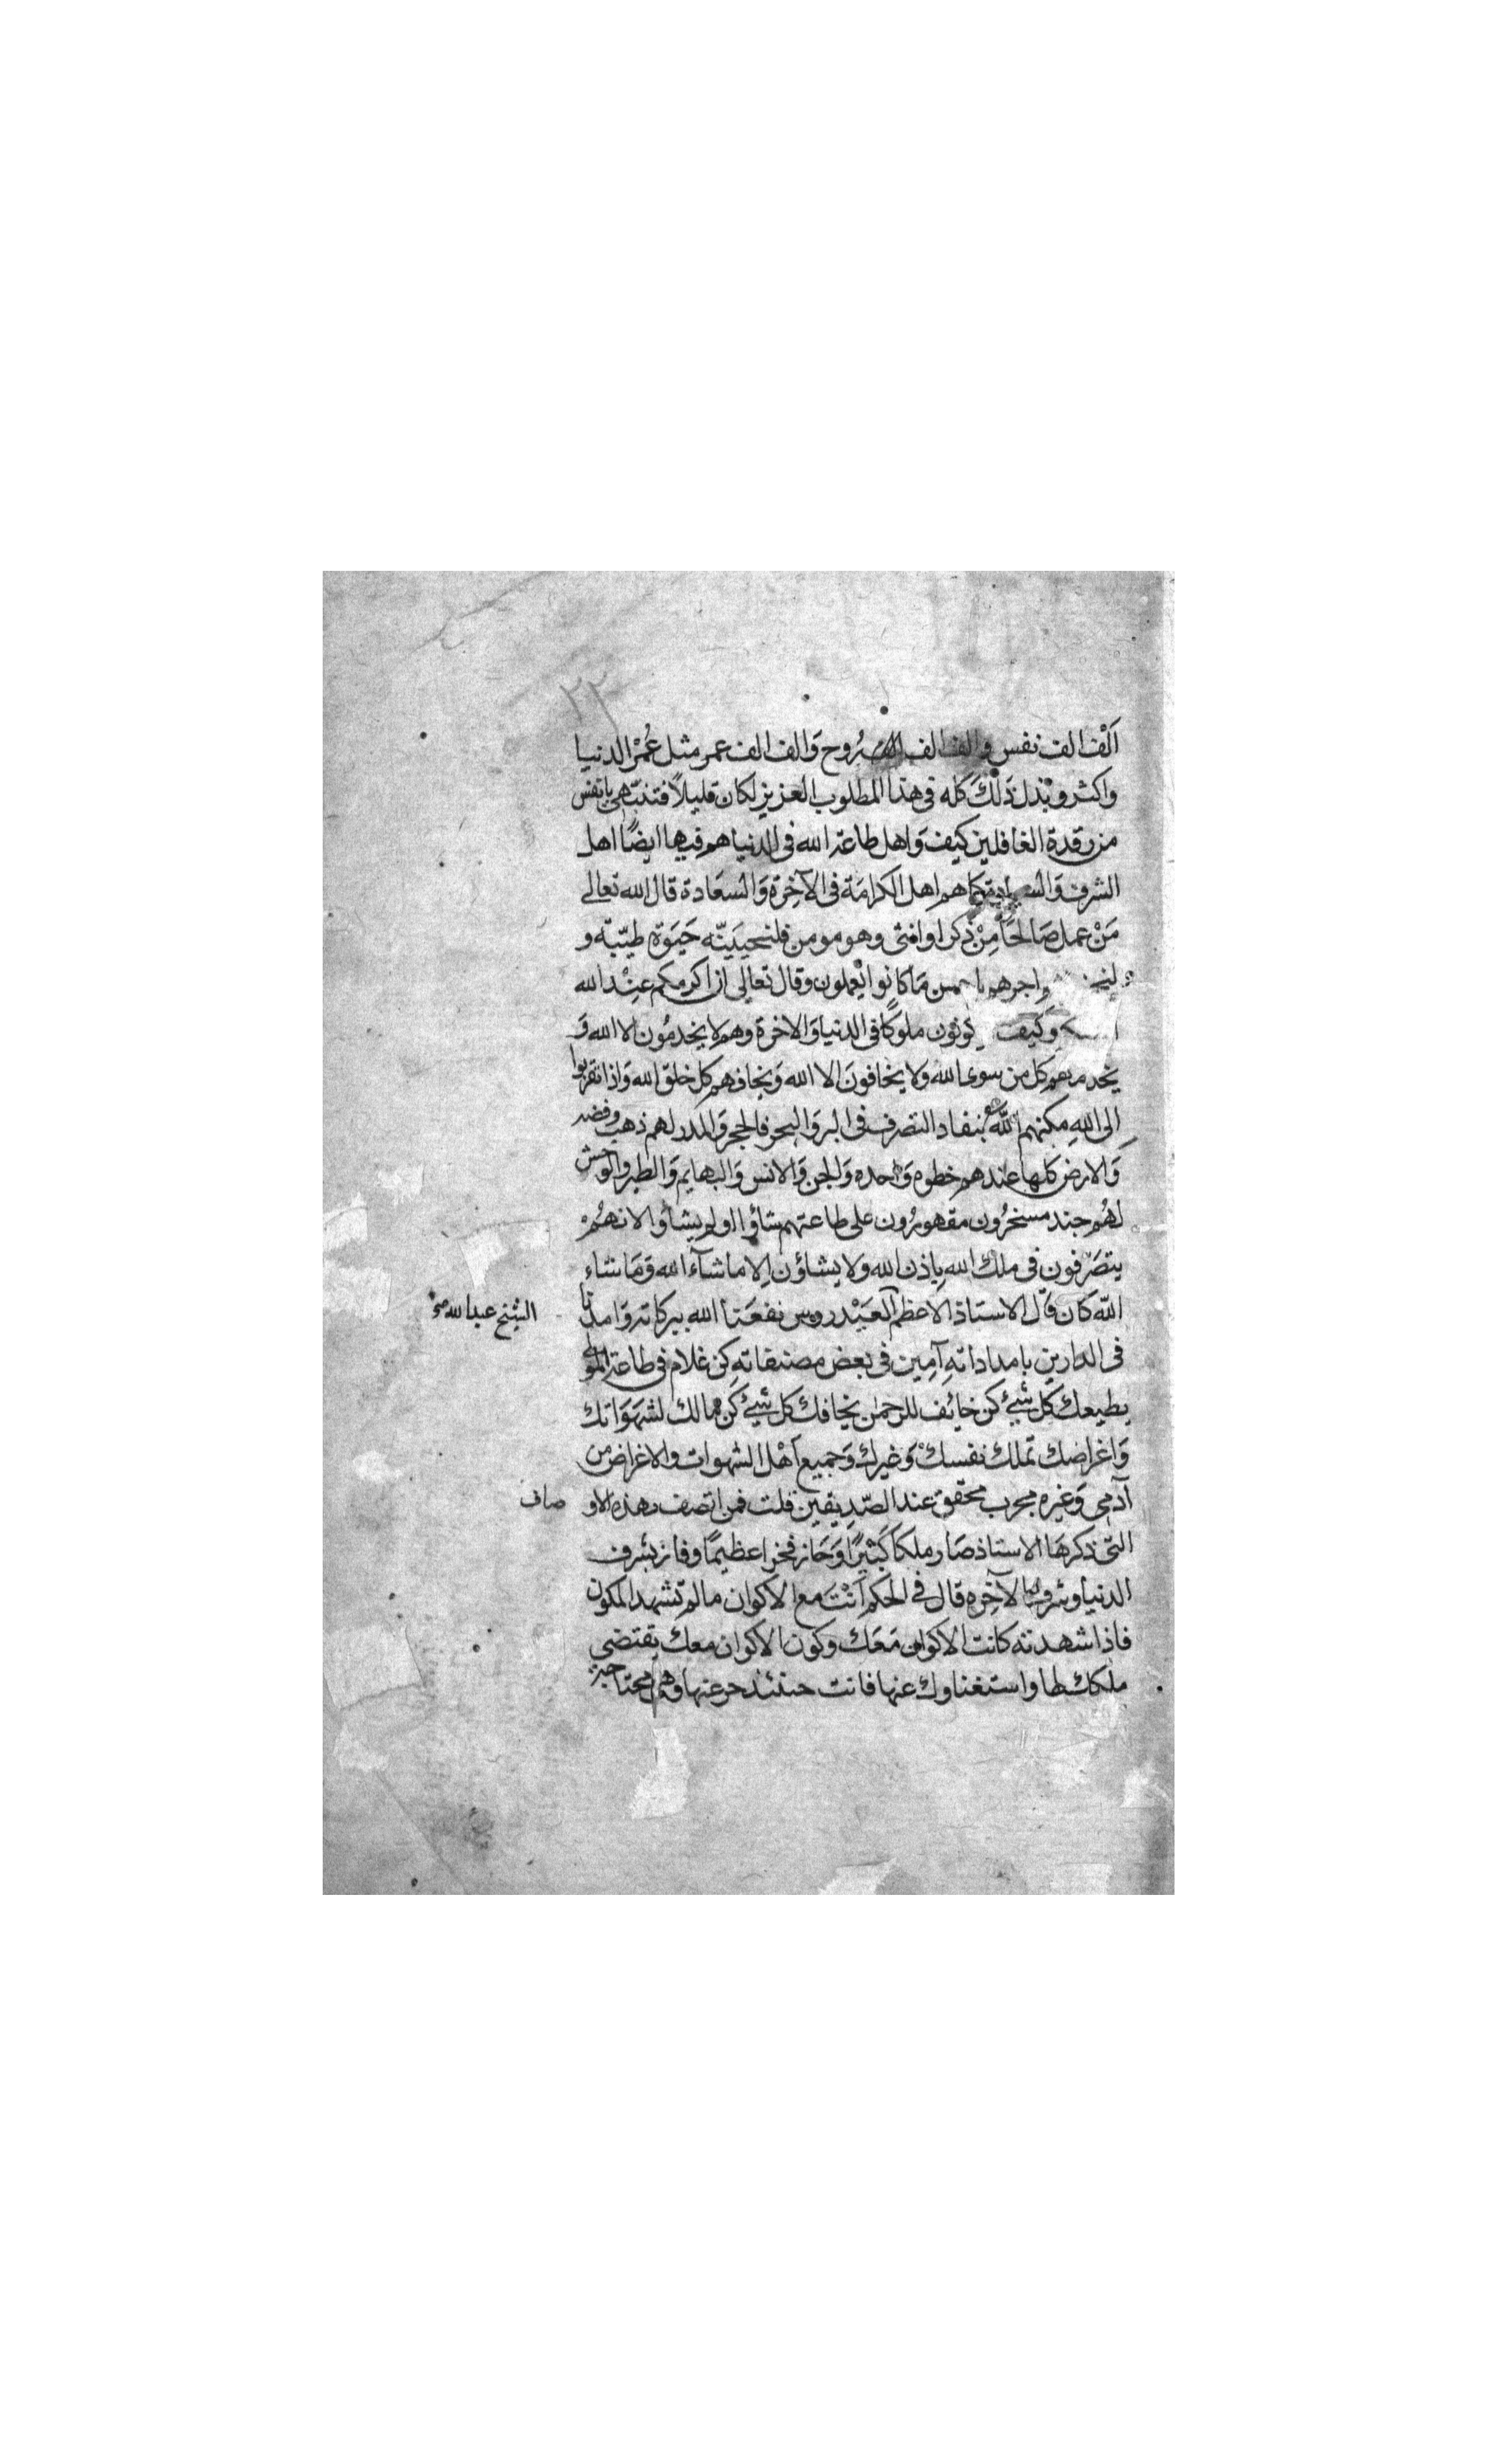 ٢٢
اَلْف الف نفس والف الف الف رُوح وَالف الف عمر مثل عُمْر الدنيا
واكثر وبَذل ذَلكَ كله فى هذا المطلوب العزيز لكان قليلاً فتنبّهى يا نفس
من رقدة الغافلين كيف وَاهل طاعة الله فى الدنيا هم فيها ايضًا اهل
الشرف وَالسيادة كما هم اهل الكرامَة فى الآخِرة وَالسعَادة قال الله تعالى
مَنْ عمل صَالحًا مِنْ ذكر او انثى وهو مومن فلنحيينّه حَيَوة طيّبة و
اجرهم باحسن مَا كانوا يعملون وقال تعالى ان اكرمكم عِنْد الله
وكيف يكونون ملوكًا فى الدنيا وَالاخرة وهم لا يخدمُون الا الله وَ
يخدمهم كل من سوى الله ولا يخافونَ الا الله وَيخافهم كل خلق الله وَاذا تقربوا
الى اللهِ مكنهم اللّه بنفاد التصرف فى البر وَالبحر فالحجر وَالمدر لهم ذهب وفضه
وَالارض كلها عندهم خطوه وَاحده وَالجن وَالانس وَالبهايم وَالطير والوحش
لهُم جند مسخرُون مقهورُون على طاعتهم شاؤا او لم يشاؤا لانهُمْ
يتصَرّفون فى ملك الله باِذن الله ولا يشاؤن اِلا ما شآء الله وَمَا شاء
اللّه كان قال الاستاذ الاعظم العَيْدروس نفعَنا الله ببركاته وَامدنا
الشيخ عبد الله صح
فى الدارين بامداداتهِ آمِين فى بعض مصنفاتهِ كن غلام فى طاعة المولى
يطيعك كل شيئ كن خائف للرحمن يخافك كل شيئ كن مالك لشهَوَاتك
وَاغراضك تملك نفسكْ وَغيرك وَجميع اَهْل الشهوات والاغراض من
آدمى وَغيره مجرب محقق عند الصّدِيقين قلت فمن اتصف بهذه الاو
صاف
التى ذكرهَا الاستاذ صَار ملكا كبَيرًا وَحَاز فخرا عظيمًا وفاز بشرف
الدنيا وشرف الآخِره قال فى الحكم اَنْتَ مع الاكوان ما لم تشهد المكون
فاذا شهدته كانت الاكوان مَعَك وكون الاكوان معك يقتضى
ملكك لها واستغناوك عنها فانت حينئذ حر عنها وهى محتاجة